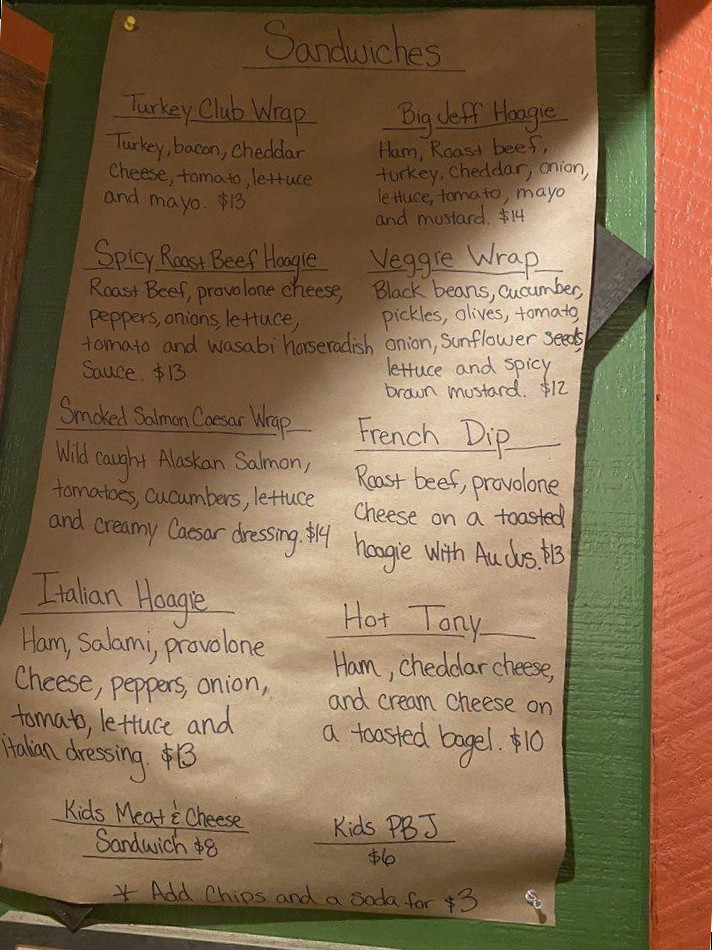 Sandwiches
Turkey Club Wrap
Turkey, bacon, cheddar
cheese, tomato, lettuce
and mayo. $13
Big Jeff Hoagie
Ham, Roast beef,
turkey, cheddar, onion,
lettuce, tomato, mayo
and mustard. $14
Spicy Roast Beef Hoagie
Roast Beef, provolone cheese,
peppers, onions, lettuce,
tomato and wasabi horseradish
Sauce. $13
Veggie Wrap
Black beans, cucumber,
pickles, olives, tomato,
onion, Sunflower seeds,
lettuce and spicy
brown mustard. $12
Smoked Salmon Caesar Wrap
Wild caught Alaskan Salmon,
tomatoes, cucumbers, lettuce
and creamy Caesar dressing. $14
French Dip
Roast beef, provolone
Cheese on a toasted
hoagie with Au Jus. $13
Italian Hoagie
Ham, Salami, provolone
Cheese, peppers, onion,
tomato, lettuce and
italian dressing. $13
Hot Tony
Ham, cheddar cheese,
and cream cheese on
a toasted bagel. $10
Kids Meat & Cheese
Sandwich $8
Kids PBJ
$6
* Add Chips and a Soda for $3